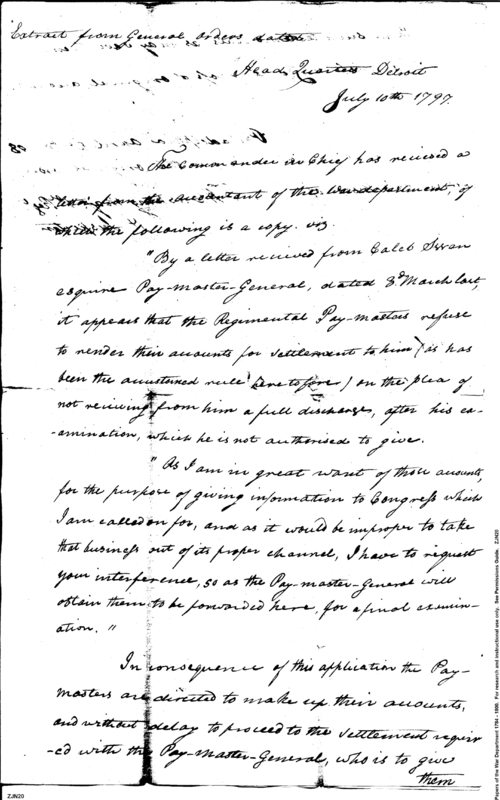 Extract from General Orders dated
Head Quarters Detroit
July 10th 1797.
The Commander in Chief has recieved a
letter from the Accountant of the War department, of
which the following is a copy. viz.
"By a letter recieved from Caleb Swan
esquire Pay-Master-General, dated 3d. March last,
it appears that the Regimental Pay-Masters refuse
to render their accounts for settlement to him (as has
been the accustomed rule heretofore) on the plea of
not recieving from him a full discharge, after his ex-
-amination, which he is not authorised to give.
"As I am in great want of those accounts,
for the purpose of giving information to Congress which
I am called on for, and as it would be improper to take
that business out of its proper channel, I have to request
your interference, so as the Pay-master-General will
obtain them to be forwarded here, for a final examin-
ation."
In consequence of this application the Pay-
masters are directed to make up their accounts,
and without delay to proceed to the settlement requir
-ed with the Pay-Master-General, who is to give
them
ZJN20
Papers of the War Department 1784 - 1800. For research and instructional use only. See Permissions Guide. ZJN20